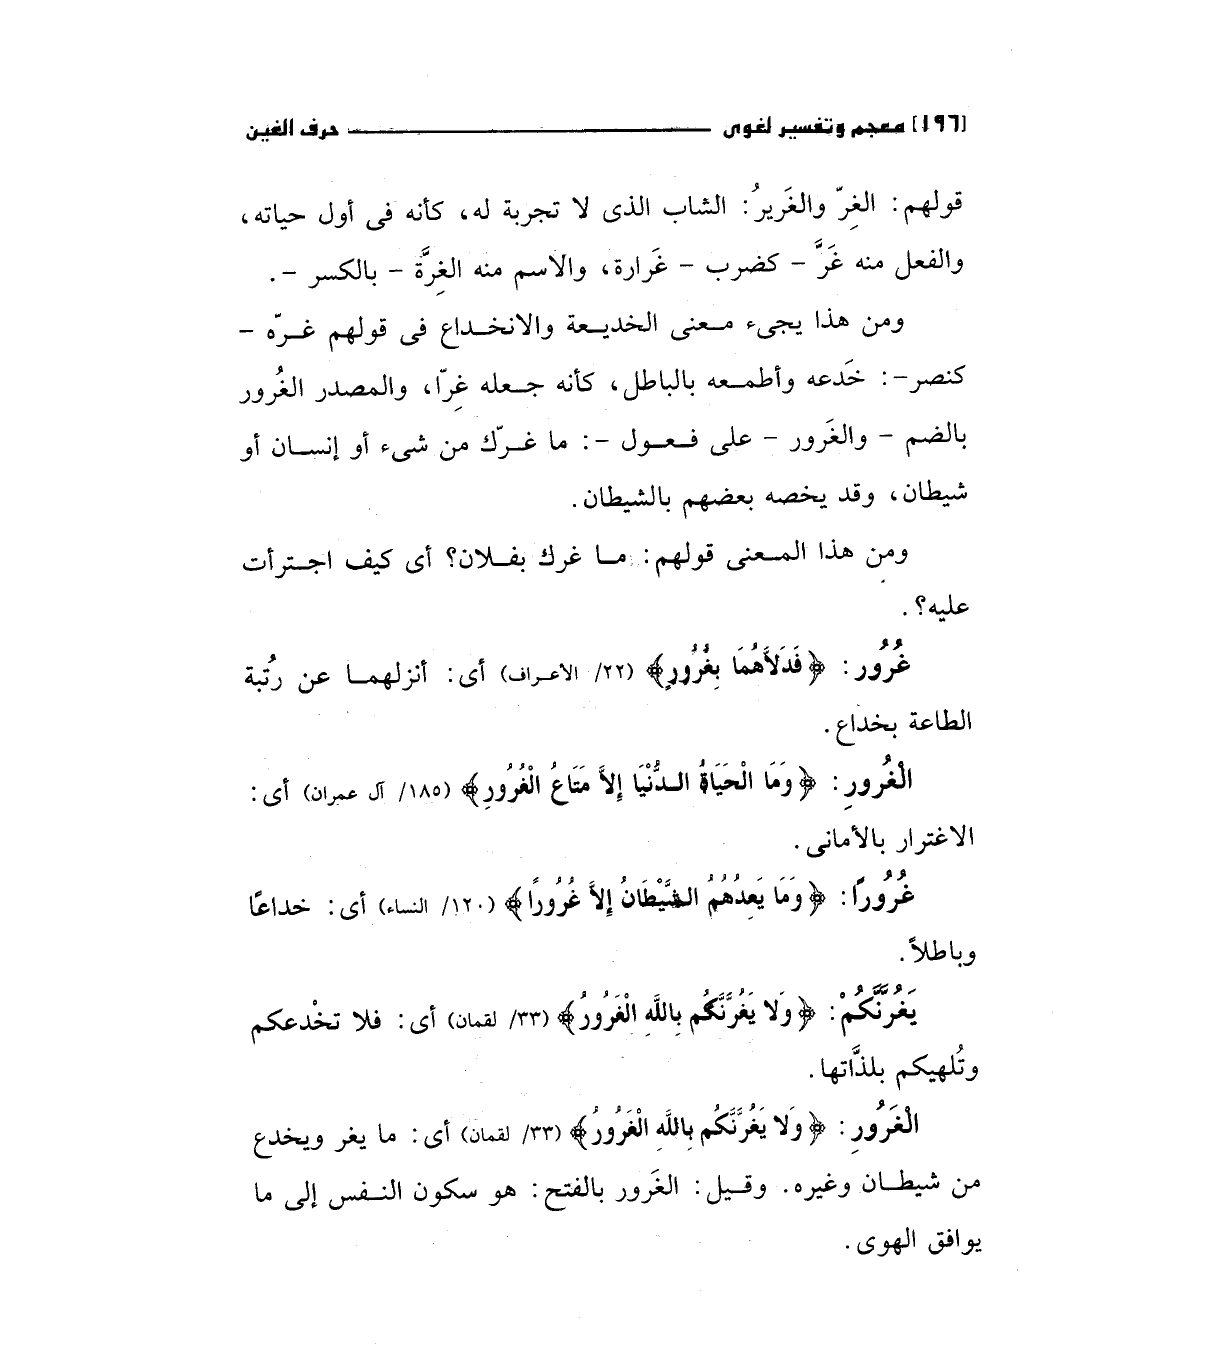 [١٩٦] معجم وتفسير لغوى ــــــــ حرف الغين
قولهم: الغِرّ والغَريرُ: الشاب الذى لا تجربة له، كأنه فى أول حياته،
والفعل منه غَرَّ - كضرب - غَرارة، والاسم منه الغِرَّة - بالكسر -.
ومن هذا يجىء معنى الخديعة والانخداع فى قولهم غرّه -
كنصر-: خَدعه وأطمعه بالباطل، كأنه جعله غِرّا، والمصدر الغُرور
بالضم - والغَرور - على فعول -: ما غرّك من شىء أو إنسان أو
شيطان، وقد يخصه بعضهم بالشيطان.
ومن هذا المعنى قولهم: ما غرك بفلان؟ أى كيف اجترأت
عليه؟.
غُرُور: ﴿فَدَلاَّهُمَا بِغُرُورٍ﴾ (٢٢/ الأعراف) أى: أنزلهما عن رُتبة
الطاعة بخداع.
الْغُرورِ: ﴿وَمَا الْحَيَاةُ الدُّنْيَا إِلاَّ مَتَاعُ الْغُرُورِ﴾ (١٨٥/ آل عمران) أى:
الاغترار بالأمانى.
غُرُورًا: ﴿وَمَا يَعِدُهُمُ الشَّيْطَانُ إِلاَّ غُرُورًا﴾ (١٢٠/ النساء) أى: خداعًا
وباطلاً.
يَغُرَّنَّكُمْ: ﴿وَلا يَغُرَّنَّكُم بِاللَّهِ الْغَرُورُ﴾ (٣٣/ لقمان) أى: فلا تخْدعكم
وتُلهيكم بلذَّاتها.
الْغَرُورِ: ﴿وَلا يَغُرَّنَّكُم بِاللَّهِ الْغَرُورُ﴾ (٣٣/ لقمان) أى: ما يغر ويخدع
من شيطان وغيره. وقيل: الغَرور بالفتح: هو سكون النفس إلى ما
يوافق الهوى.